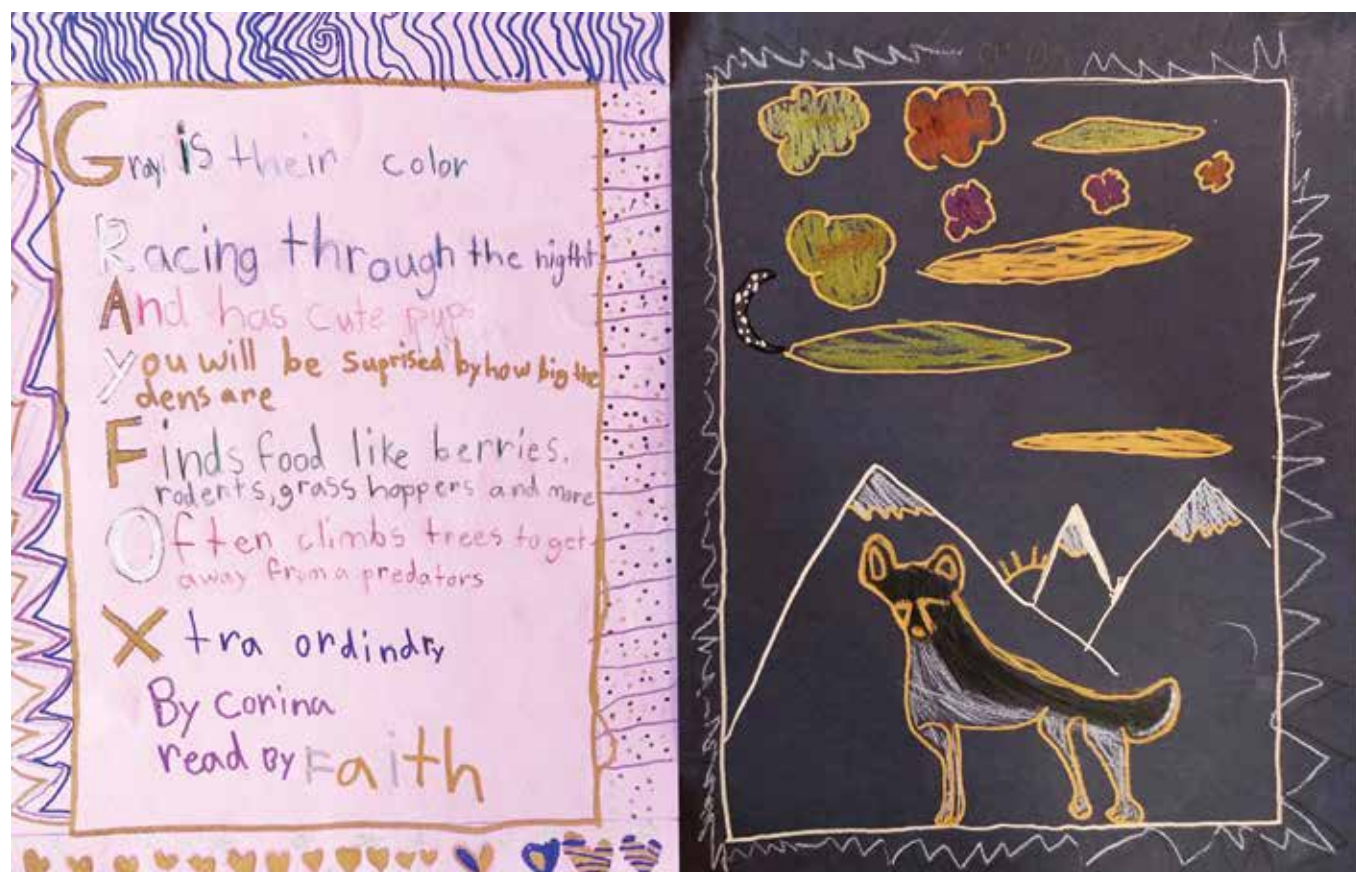 Gray is their color
Racing through the nigtht
And has cute pups
You will be suprised by how big the
dens are
Finds food like berries,
rodents, grass hoppers and more
Often climbs trees to get
away from a predators
Xtra ordindry
By Corina
read By Faith